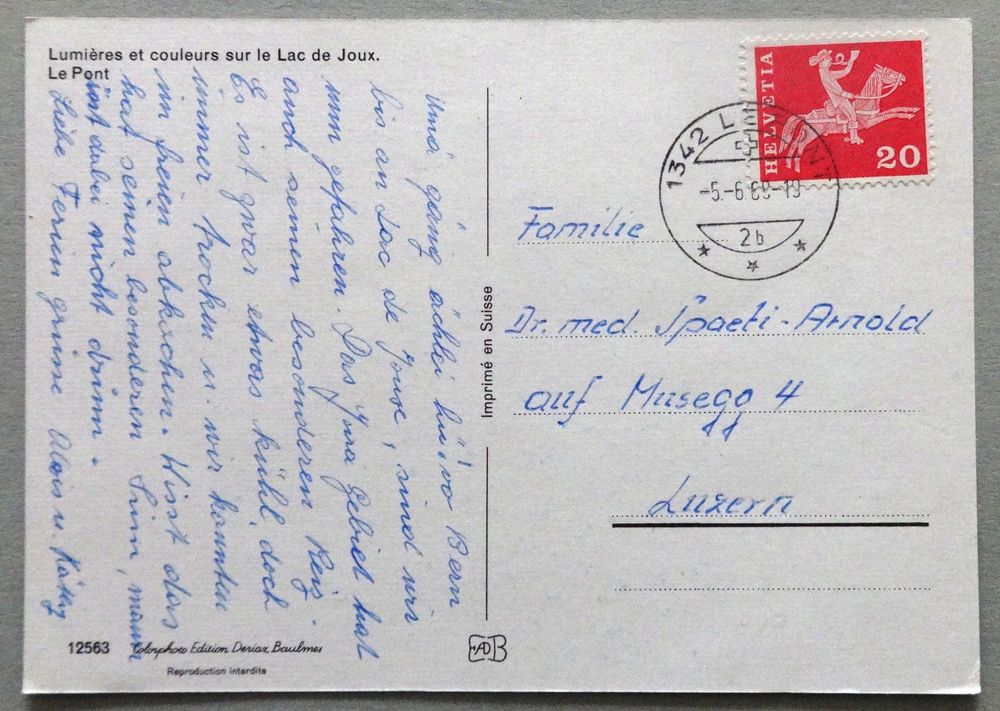 Lumières et couleurs sur le Lac de Joux.
Le Pont
Und gäng ächlei hü! vo Bern
bis an Lac de Joux, sind wir
nun gefahren. Das Jura Gebiet hat
auch seinen besonderen Reiz.
Es ist zwar etwas kühl, doch
immer trocken u. wir konnten
im freien abkochen. Wisst das
hat seinen besonderen Sinn, wenn
dabei nicht drinn.
Liebe Ferien grüsse Alois u. Käthy
12563 Colorphoto Edition Deriaz Baulmes
Reproduction interdite
Imprimé en Suisse
HELVETIA
20
1342 LE PONT
-5.-6.69-19
2b
Familie
Dr. med. Spaeti-Arnold
auf Musegg 4
Luzern